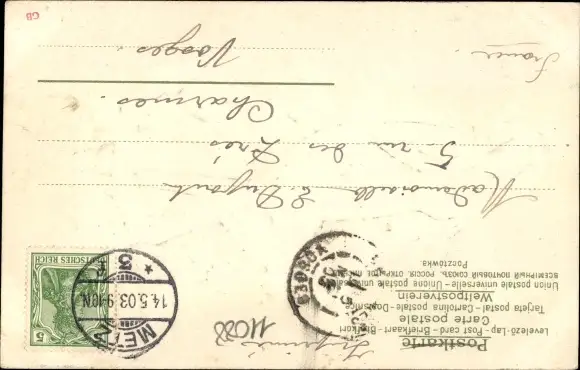 Postkarte
Levelező-Lap - Post card - Briefkaart - Brefkort
Carte postale
Tarjeta postal - Cartolina postale - Dopisnice
Weltpostverein
Union postale universelle - Unione postale universale
ВСЕМІРНЫЙ ПОЧТОВЫЙ СОЮЗЪ. РОССІЯ. ОТКРЫТОЕ
Pocztówka.
Imprimé
11038
DEUTSCHES REICH
5
METZ
14.5.03.9-10N
* 3
VOSGES
03
Mademoiselle E. Dupont
5 rue des Prés
Charmes.
Vosges.
France.
CB